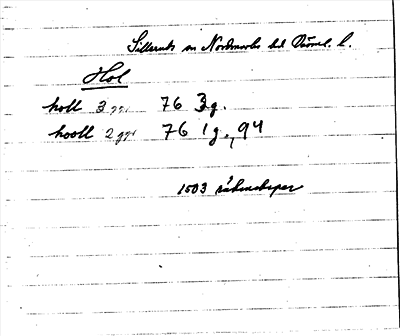 Sillerud sn Nordmarks hd Värml. l.
Hol
holl 3 ggr 76 3g.
hooll 2 ggr 76 1g., 94
1503 räkenskaper